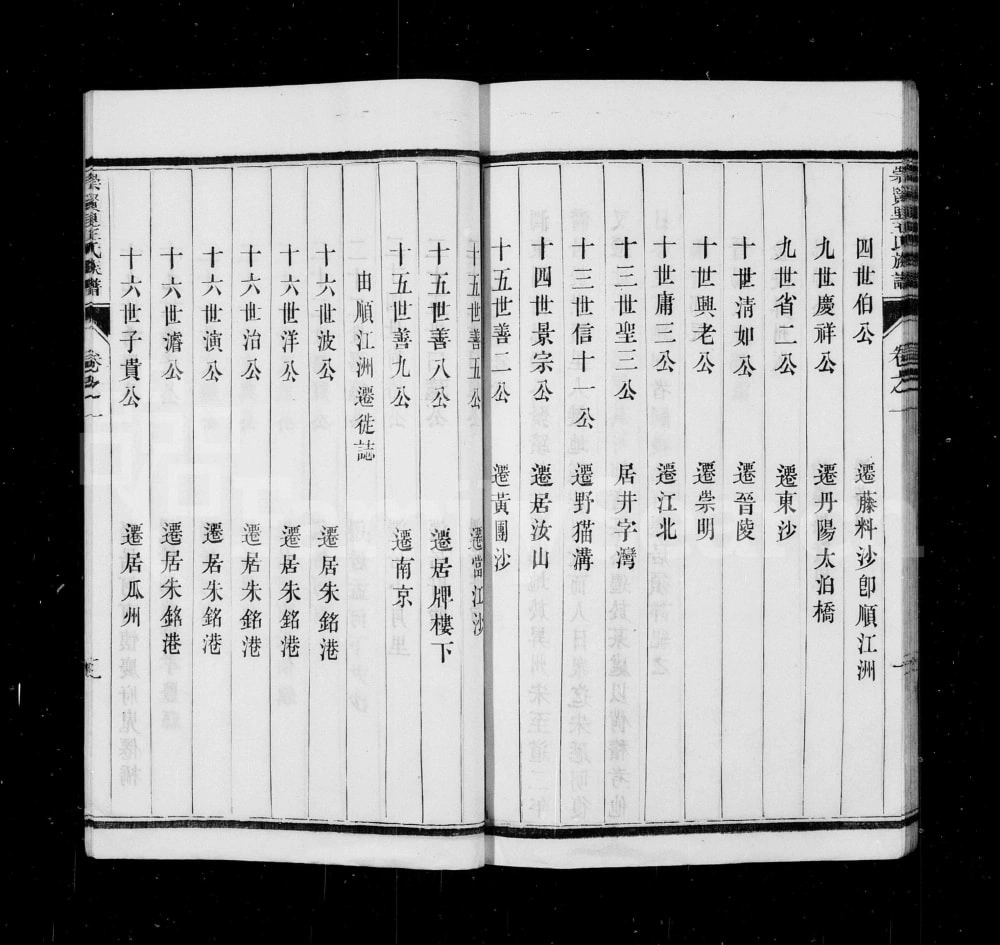 四世伯公　遷藤料沙卽順江洲
九世慶祥公　遷丹陽太泊橋
九世省二公　遷東沙
十世清如公　遷晉陵
十世興老公　遷崇明
十世庸三公　遷江北
十三世聖三公　居井字灣
十三世信十一公　遷野猫溝
十四世景宗公　遷居汝山
十五世善二公　遷黃團沙
十五世善五公　遷當江沙
十五世善八公　遷居牌樓下
十五世善九公　遷南京
由順江洲遷徙誌
十六世波公　遷居朱銘港
十六世洋公　遷居朱銘港
十六世治公　遷居朱銘港
十六世演公　遷居朱銘港
十六世澹公　遷居朱銘港
十六世子貴公　遷居瓜州